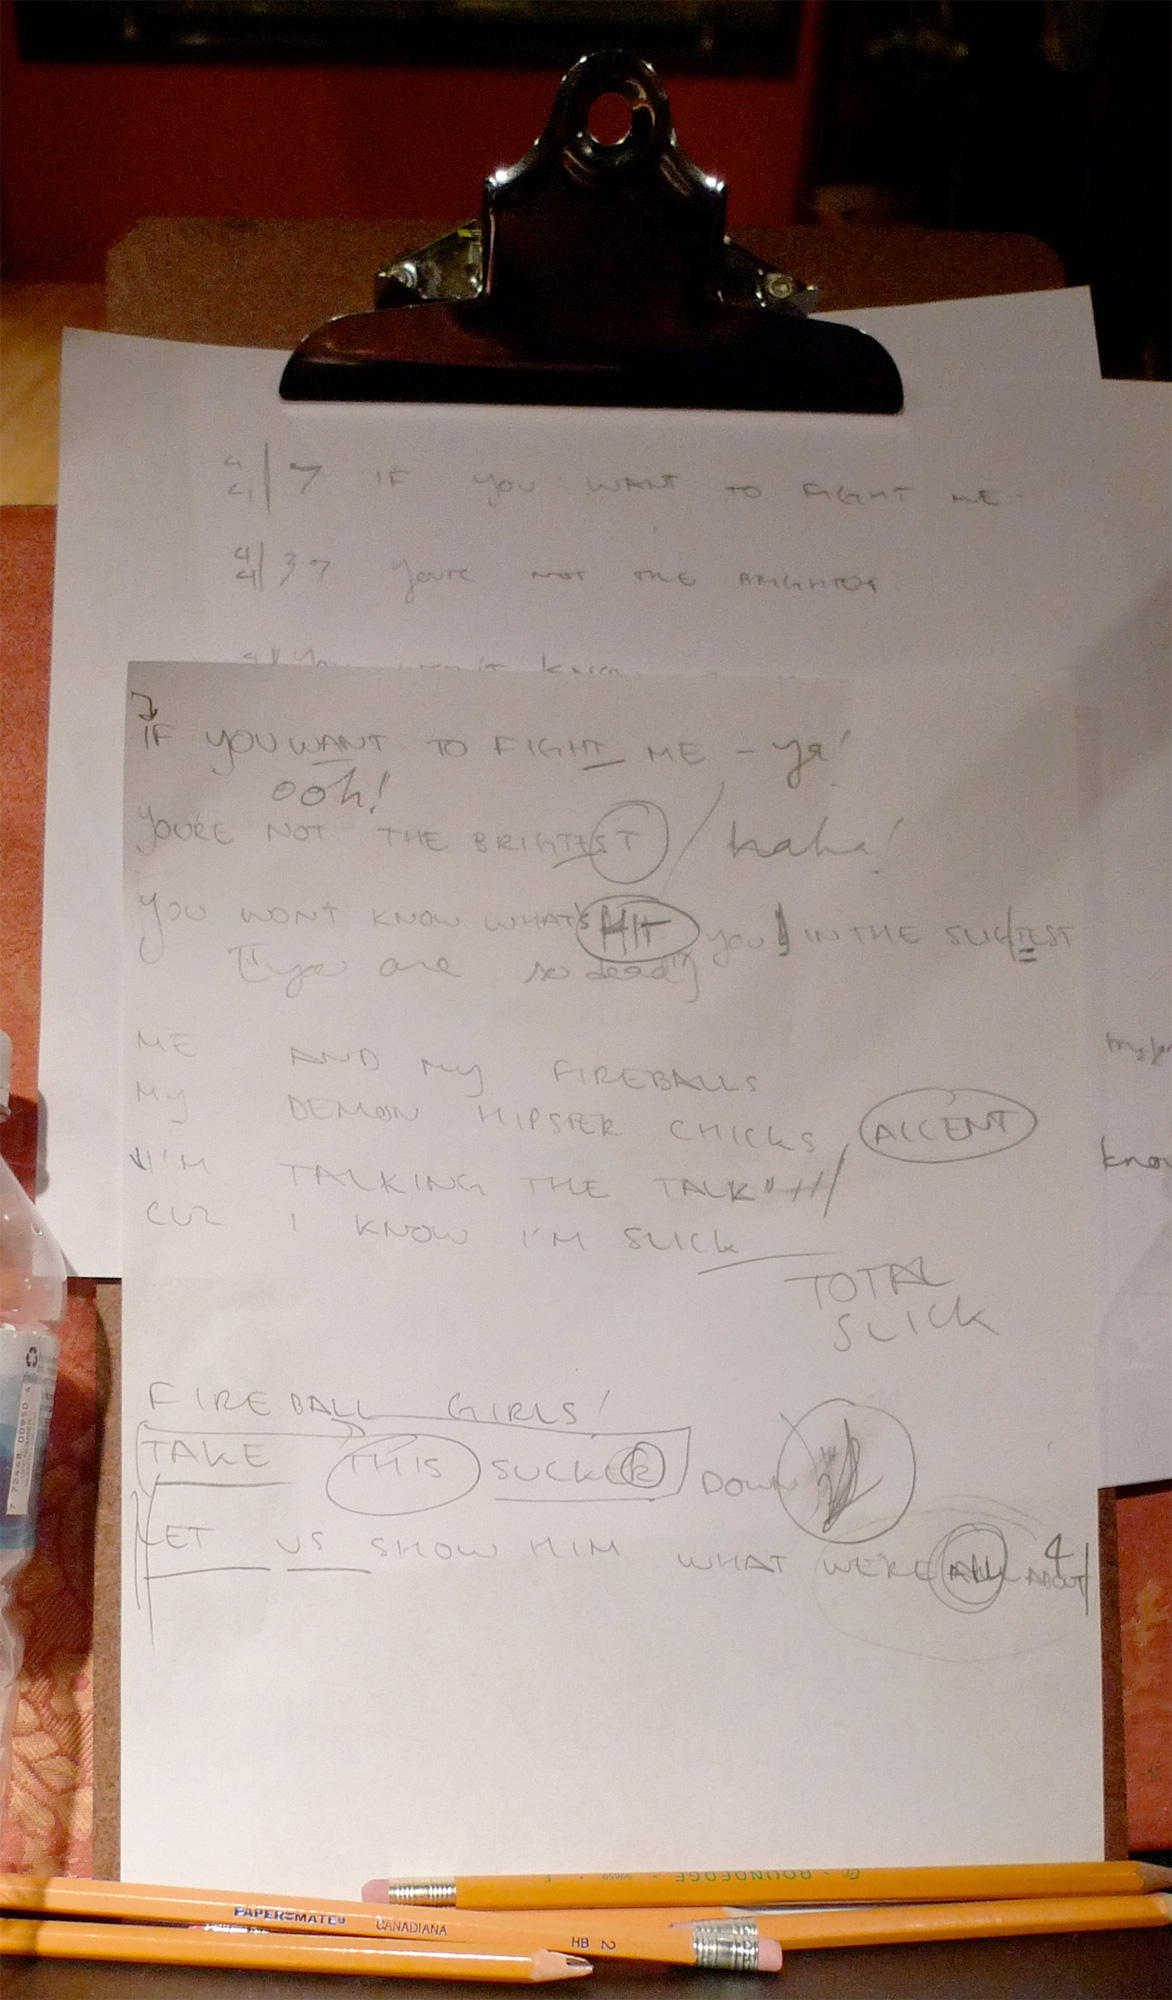 4/4 7 IF YOU WANT TO FIGHT ME -
4/4 37 YOU'RE NOT THE BRIGHTES
You won't know
IF YOU WANT TO FIGHT ME - ya!
ooh!
YOU'RE NOT THE BRIGTEST haha!
YOU WON'T KNOW WHAT'S HIT YOU IN THE SLIGTEST
["you are so dead"]
ME AND MY FIREBALLS
MY DEMON HIPSTER CHICKS ACCENT
I'M TALKING THE TALK
CUZ I KNOW I'M SLICK
TOTAL
SLICK
FIREBALL GIRLS!
TAKE THIS SUCKER DOWN
LET US SHOW HIM WHAT WE'RE ALL ABOUT 4
know
7 72468 00950 4
ROUNDEDGE
PAPER:MATE CANADIANA HB 2